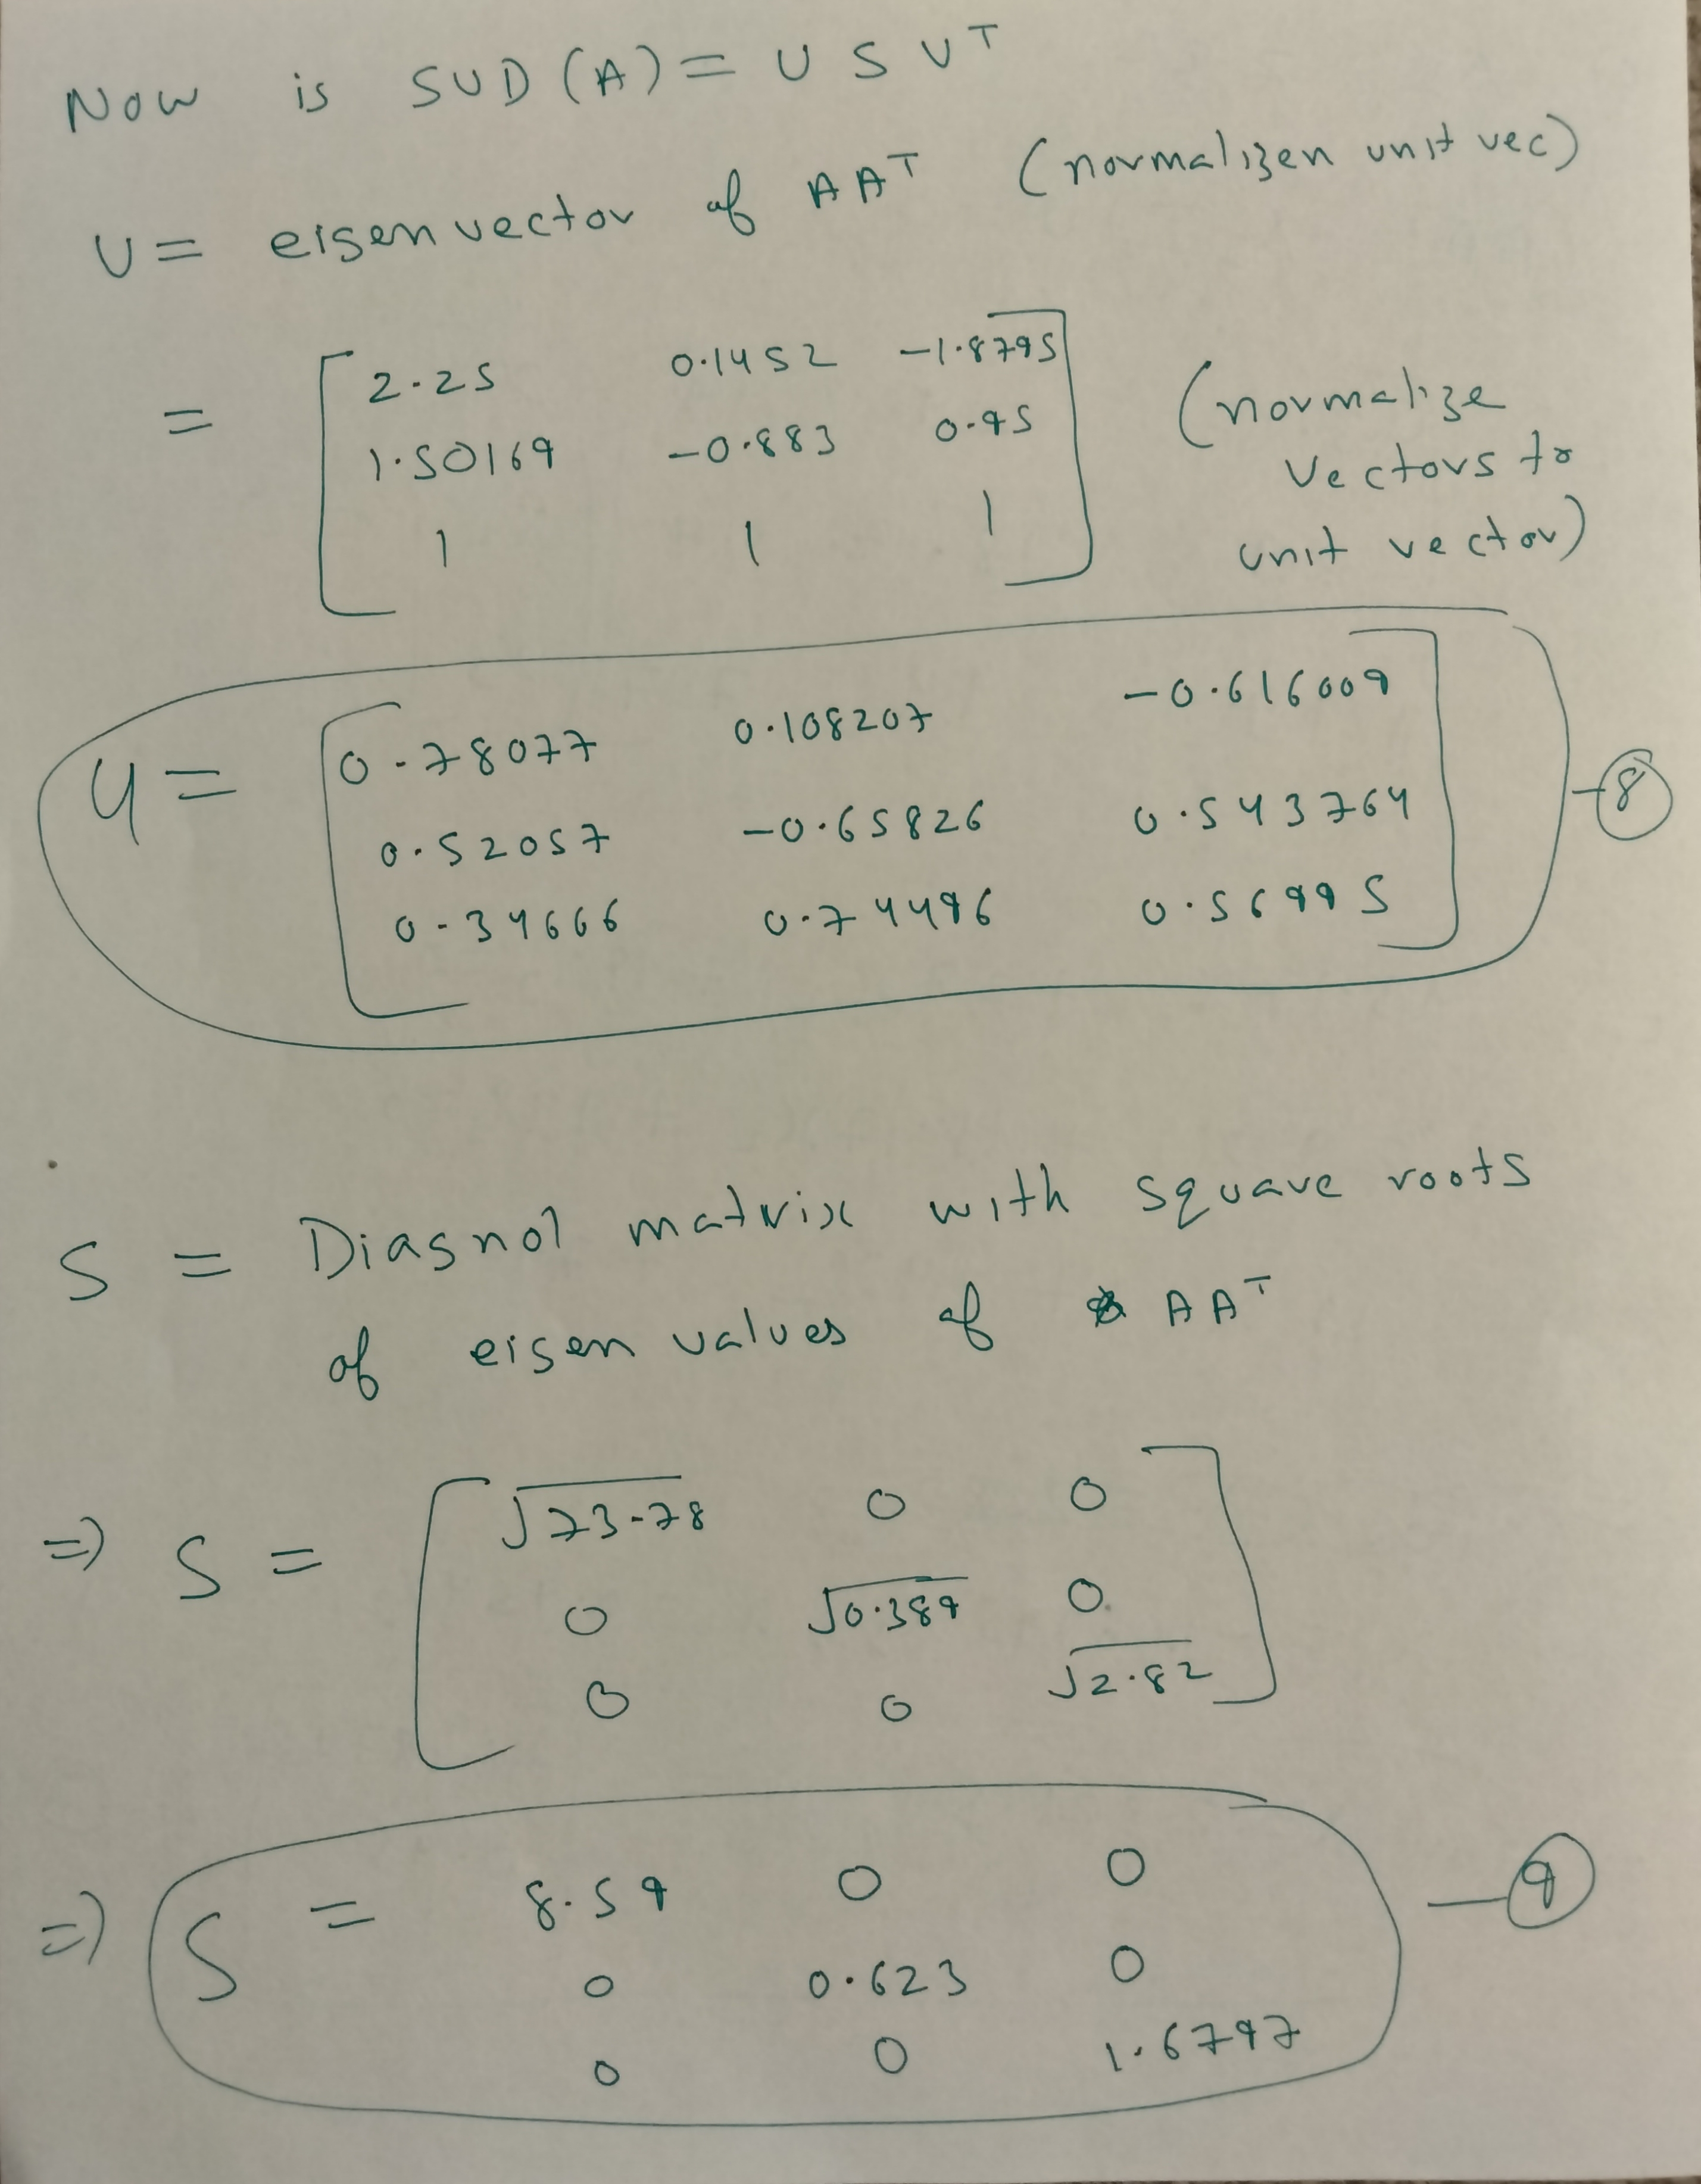 Now is SVD (A) = U S V^T
U = eigen vector of A A^T (normalizen unit vec)
= [ 2.25 0.1452 -1.8795 ] (normalize
1.50169 -0.883 0.95 Vectors to
1 1 1 unit vector)
U = [ 0.78077 0.108207 -0.616009 ] - 8
0.52057 -0.65826 0.543764
0.34666 0.74496 0.56995
S = Diagnol matrix with square roots
of eigen values of A A^T
=> S = [ √73.78 0 0 ]
0 √0.389 0
0 0 √2.82
=> S = 8.59 0 0 - 9
0 0.623 0
0 0 1.6797